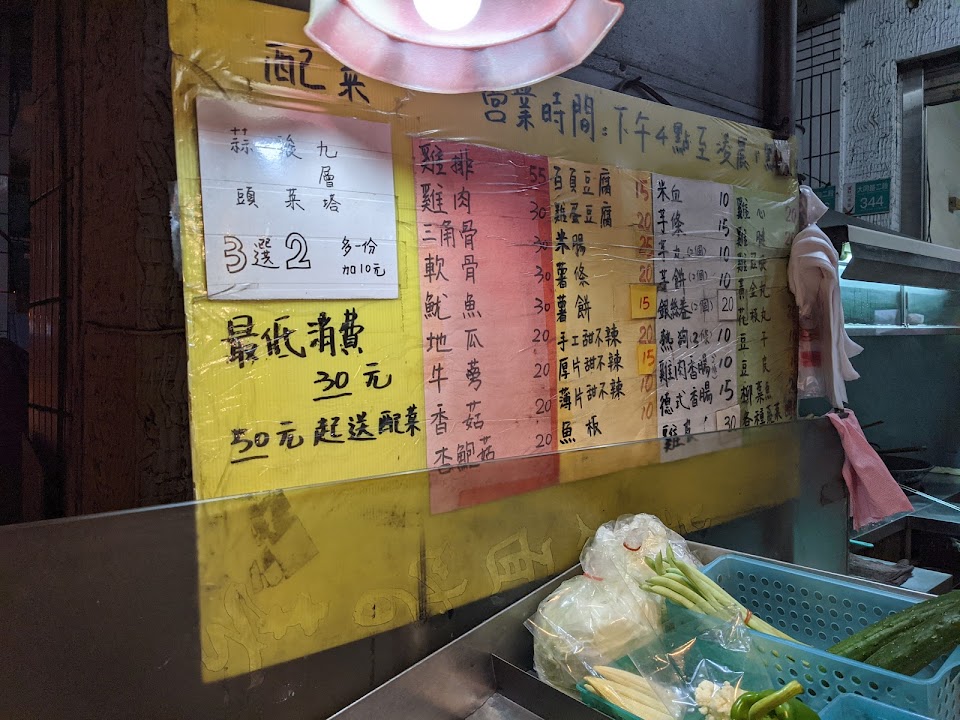 配菜
營業時間:下午4點至凌晨
蒜頭 酸菜 九層塔
3選2 多一份
加10元
最低消費
30元
50元起送配菜
雞排 55
雞肉 30
三角骨 30
軟骨 30
魷魚 30
地瓜 20
牛蒡 20
香菇 20
杏鮑菇 20
百頁豆腐 15
雞蛋豆腐 20
米腸 25
薯條 20
薯餅 15
手工甜不辣 20
厚片甜不辣 15
薄片甜不辣 10
魚板 10
米血 10
芋條 15
10
芋餅(2個) 10
銀絲卷(2個) 20
熱狗(2條) 10
雞肉香腸 10
德式香腸 15
雞 30
雞心 20
雞
黃金丸
花枝丸
豆干
豆皮
柳葉魚
各種蔬菜
344